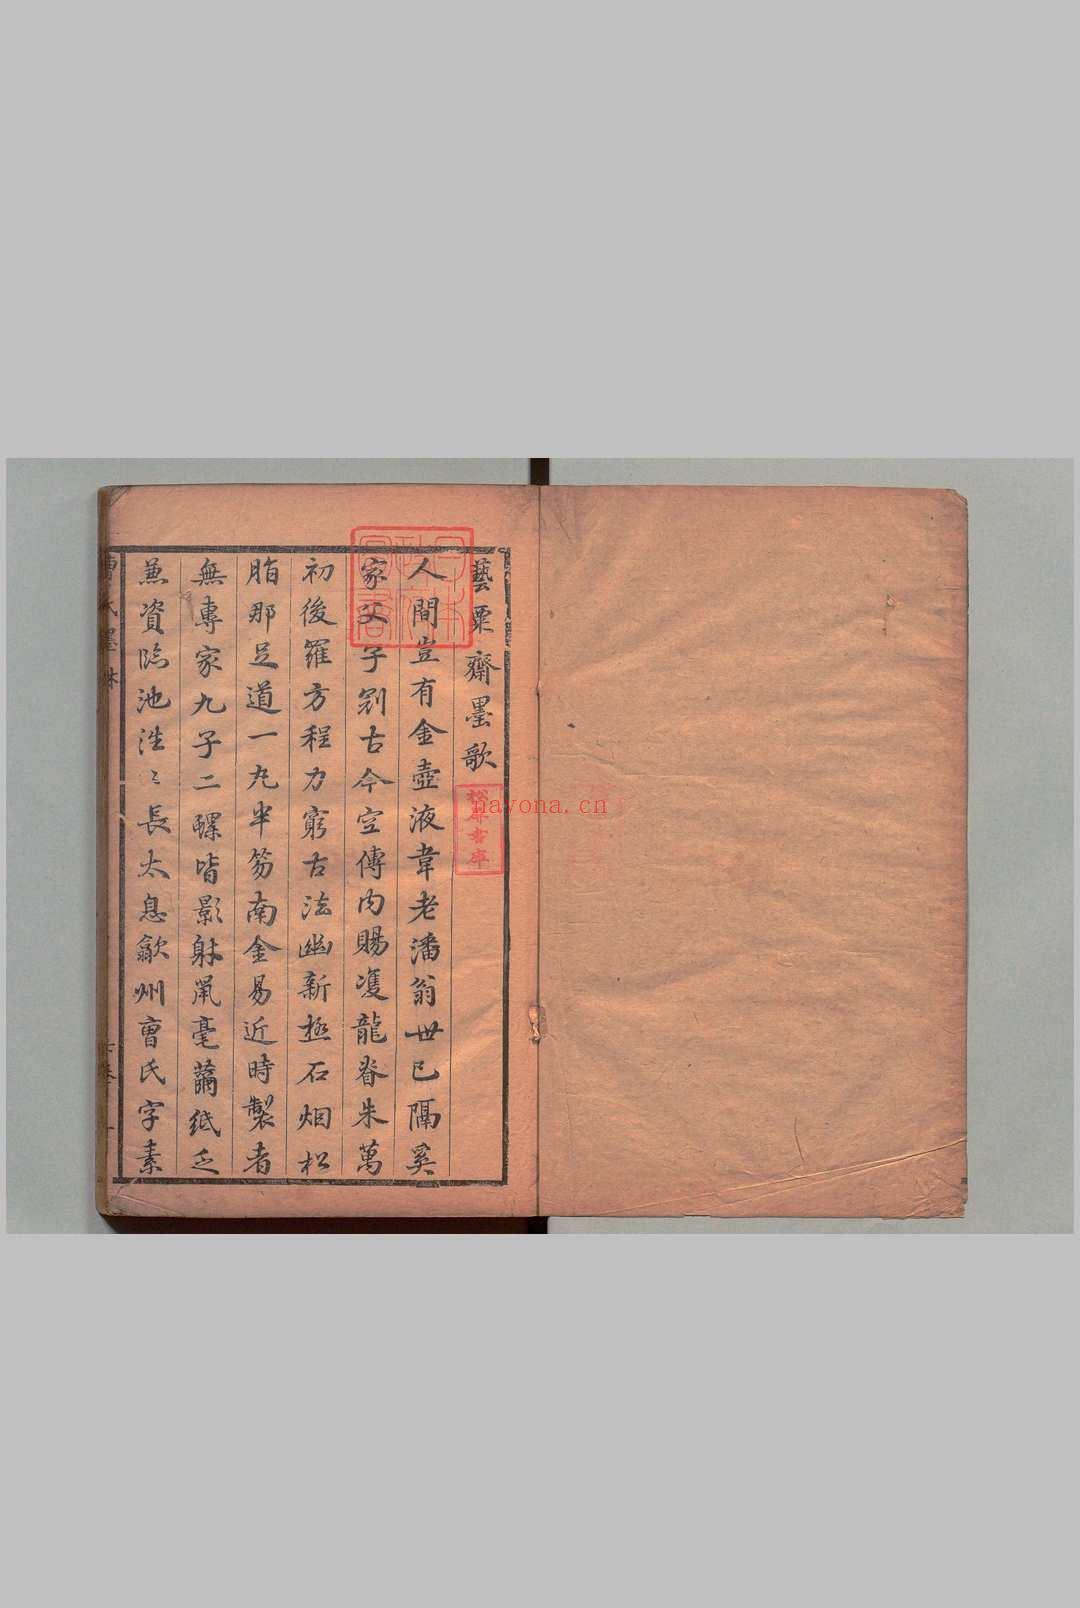 藝粟齋墨歌
人間豈有金壺液韋老潘翁世已隔奚
家父子别古今空傳内賜雙龍脊朱萬
初後羅方程力窮古法幽新極石烟松
脂那足道一丸半笏南金易近時製者
無專家九子二螺皆影射鼠毫繭紙乏
兼資臨池淮〻長太息歙州曹氏字素
曹氏墨林
nayona.cn